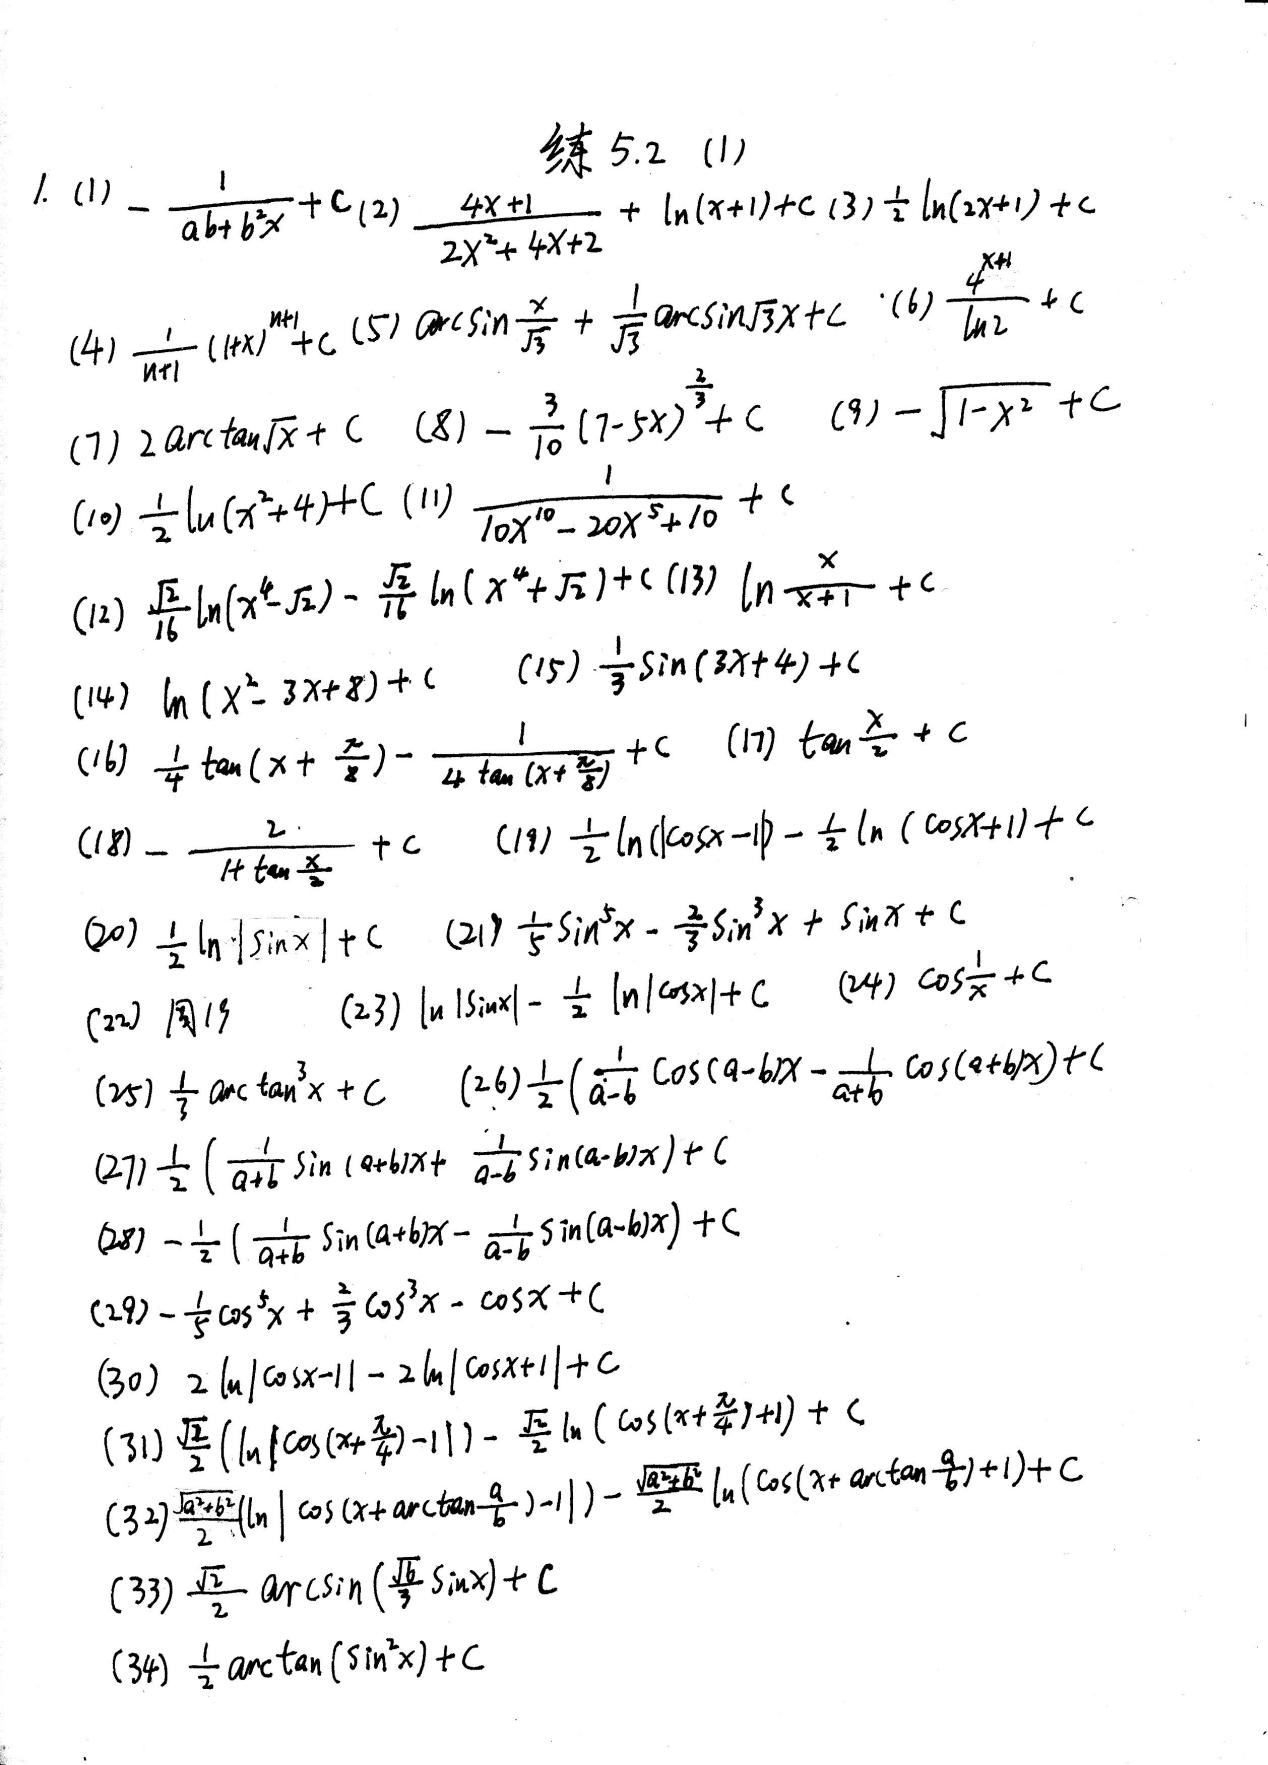 练 5.2 (1)
1. (1) - \frac{1}{ab+b^2x}+C (2) \frac{4x+1}{2x^2+4x+2} + ln(x+1)+C (3) \frac{1}{2} ln(2x+1)+C
(4) \frac{1}{n+1}(1+x)^{n+1}+C (5) arcsin\frac{x}{\sqrt{3}} + \frac{1}{\sqrt{3}}arcsin\sqrt{3}x+C (6) \frac{4^{x+1}}{ln2}+C
(7) 2arctan\sqrt{x}+C (8) -\frac{3}{10}(7-5x)^{\frac{2}{3}}+C (9) -\sqrt{1-x^2}+C
(10) \frac{1}{2}ln(x^2+4)+C (11) \frac{1}{10x^{10}-20x^5+10}+C
(12) \frac{\sqrt{2}}{16}ln(x^4-\sqrt{2}) - \frac{\sqrt{2}}{16}ln(x^4+\sqrt{2})+C (13) ln\frac{x}{x+1}+C
(14) ln(x^2-3x+8)+C (15) \frac{1}{3}sin(3x+4)+C
(16) \frac{1}{4}tan(x+\frac{π}{8}) - \frac{1}{4tan(x+\frac{π}{8})}+C (17) tan\frac{x}{2}+C
(18) -\frac{2}{1+tan\frac{x}{2}}+C (19) \frac{1}{2}ln(|cosx-1|) - \frac{1}{2}ln(cosx+1)+C
(20) \frac{1}{2}ln|sinx|+C (21) \frac{1}{5}sin^5x - \frac{2}{3}sin^3x + sinx+C
(22) 同19 (23) ln|sinx| - \frac{1}{2}ln|cosx|+C (24) cos\frac{1}{x}+C
(25) \frac{1}{3}arctan^3x+C (26) \frac{1}{2}(\frac{1}{a-b}cos(a-b)x - \frac{1}{a+b}cos(a+b)x)+C
(27) \frac{1}{2}(\frac{1}{a+b}sin(a+b)x + \frac{1}{a-b}sin(a-b)x)+C
(28) -\frac{1}{2}(\frac{1}{a+b}sin(a+b)x - \frac{1}{a-b}sin(a-b)x)+C
(29) -\frac{1}{5}cos^5x + \frac{2}{3}cos^3x - cosx+C
(30) 2ln|cosx-1| - 2ln|cosx+1|+C
(31) \frac{\sqrt{2}}{2}(ln|cos(x+\frac{π}{4})-1|) - \frac{\sqrt{2}}{2}ln(cos(x+\frac{π}{4})+1)+C
(32) \frac{\sqrt{a^2+b^2}}{2}(ln|cos(x+arctan\frac{a}{b})-1|) - \frac{\sqrt{a^2+b^2}}{2}ln(cos(x+arctan\frac{a}{b})+1)+C
(33) \frac{\sqrt{2}}{2}arcsin(\frac{\sqrt{6}}{3}sinx)+C
(34) \frac{1}{2}arctan(sin^2x)+C